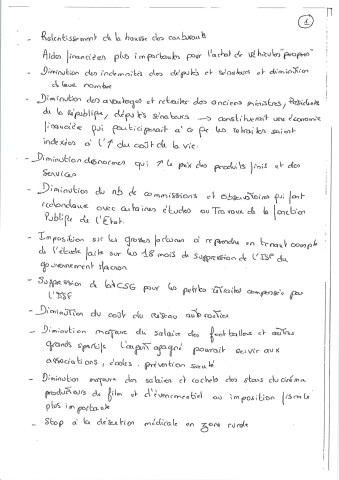 1
- Ralentissement de la hausse des carburants
Aides financières plus importantes pour l'achat de véhicules "propres"
- Diminution des indemnités des députés et sénateurs et diminution
de leur nombre
- Diminution des avantages et retraites des anciens ministres, Présidents
de la République, députés sénateurs → constitueraient une économie
financière qui participerait à ce que les retraites soient
indexées à l'↑ du coût de la vie.
- Diminution des normes qui ↑ le prix des produits finis et des
services
- Diminution du nb de commissions et observatoires qui font
redondance avec certaines études ou travaux de la fonction
Publique de l'Etat.
- Imposition sur les grosses fortunes à reprendre en tenant compte
de l'étude faite sur les 18 mois de suppression de l'ISF du
gouvernement Macron
- Suppression de la CSG pour les petites retraites compensée par
l'ISF
- Diminution du coût du réseau autoroutier
- Diminution majeure du salaire des footballeurs et autres
grands sportifs l'argent gagné pourrait servir aux
associations, écoles, prévention santé
- Diminution majeure des salaires et cachets des stars du cinéma
producteurs de film et d'évènementiel ou imposition fiscale
plus importante
- Stop à la désertion médicale en zone rurale